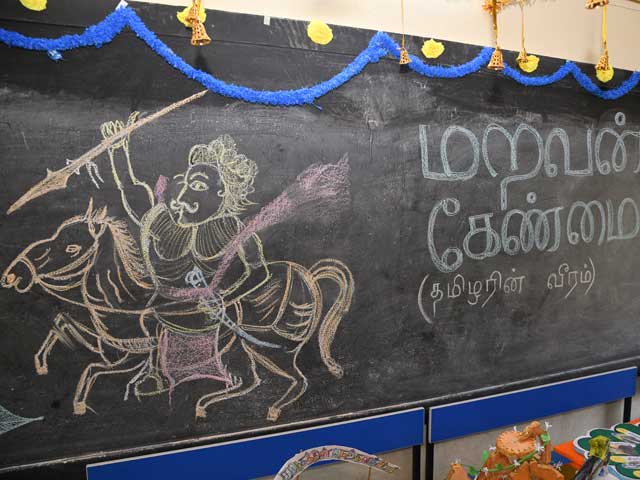 மறவன்
கேண்மை
(தமிழரின் வீரம்)